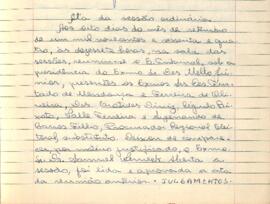 Ata da sessão ordinária
Aos oito dias do mês de setembro
de um mil novecentos e sessenta e qua-
tro, às dezessete horas, na sala das
sessões, reuniu-se o E. Tribunal, sob a
presidência do Exmo. Sr. Des. Mello Jú-
nior, presentes os Exmos. Srs. Des.
de Mendonça, Ferreira de Oli-
veira, Drs.
Ferreira e
de Barros Filho, Procurador Regional Elei-
toral, substituto. Deixou de compare-
cer, por motivo justificado, o Exmo.
Sr. Dr. Samuel Aberta a
sessão, foi lida e aprovada a ata
da reunião anterior. JULGAMENTOS: